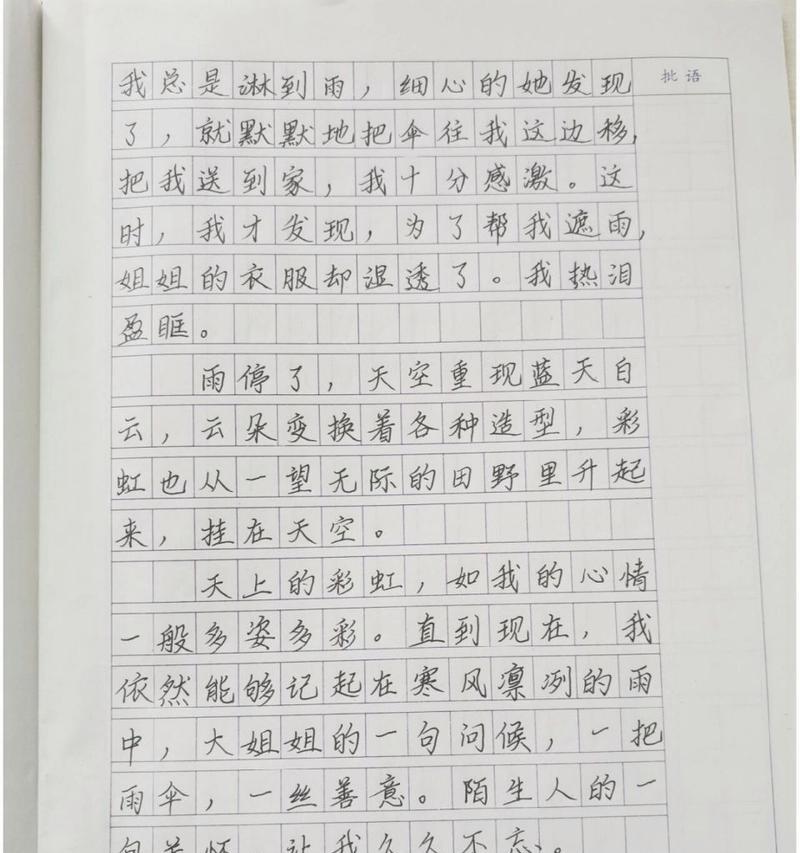 批语
我总是淋到雨，细心的她发现
了，就默默地把伞往我这边移，
把我送到家，我十分感激。这
时，我才发现，为了帮我遮雨，
姐姐的衣服却湿透了。我热泪
盈眶。
雨停了，天空重现蓝天白
云，云朵变换着各种造型，彩
虹也从一望无际的田野里升起
来，挂在天空。
天上的彩虹，如我的心情
一般多姿多彩。直到现在，我
依然能够记起在寒风凛冽的雨
中，大姐姐的一句问候，一把
雨伞，一丝善意。陌生人的一
句关怀，让我久久不忘。